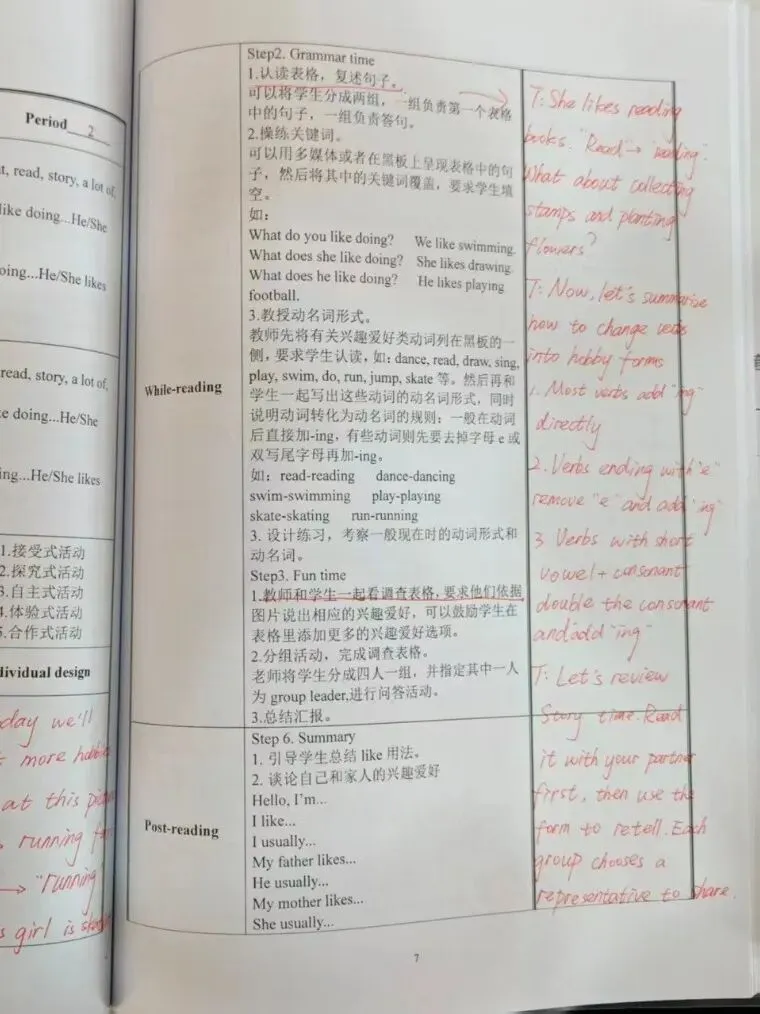 Period 2
t, read, story, a lot of,
like doing...He/She
oing...He/She likes
read, story, a lot of,
ke doing...He/She
ng...He/She likes
1.接受式活动
2.探究式活动
3.自主式活动
4.体验式活动
5.合作式活动
dividual design
day we'll
more hobbies
at this
running
→ "running"
girl is
While-reading
Step2. Grammar time
1.认读表格，复述句子。
可以将学生分成两组，一组负责第一个表格
中的句子，一组负责答句。
2.操练关键词。
可以用多媒体或者在黑板上呈现表格中的句
子，然后将其中的关键词覆盖，要求学生填
空。
如：
What do you like doing? We like swimming.
What does she like doing? She likes drawing.
What does he like doing? He likes playing
football.
3.教授动名词形式。
教师先将有关兴趣爱好类动词列在黑板的一
侧，要求学生认读，如: dance, read, draw, sing,
play, swim, do, run, jump, skate 等。然后再和
学生一起写出这些动词的动名词形式，同时
说明动词转化为动名词的规则：一般在动词
后直接加-ing，有些动词则先要去掉字母 e 或
双写尾字母再加-ing。
如：read-reading dance-dancing
swim-swimming play-playing
skate-skating run-running
3. 设计练习，考察一般现在时的动词形式和
动名词。
Step3. Fun time
1.教师和学生一起看调查表格，要求他们依据
图片说出相应的兴趣爱好，可以鼓励学生在
表格里添加更多的兴趣爱好选项。
2.分组活动，完成调查表格。
老师将学生分成四人一组，并指定其中一人
为 group leader,进行问答活动。
3.总结汇报。
Post-reading
Step 6. Summary
1. 引导学生总结 like 用法。
2. 谈论自己和家人的兴趣爱好
Hello, I'm...
I like...
I usually...
My father likes...
He usually...
My mother likes...
She usually...
T: She likes reading
books. "Read → reading".
What about collecting
stamps and planting
flowers?
T: Now, let's summarize
how to change verbs
into hobby forms
1. Most verbs add "ing"
directly
2. Verbs ending with "e"
remove "e" and add "ing"
3 Verbs with short
vowel + consonant
double the consonant
and add "ing"
T: Let's review
Story time. Read
it with your partner
first, then use the
form to retell. Each
group chooses a
representative to share.
7